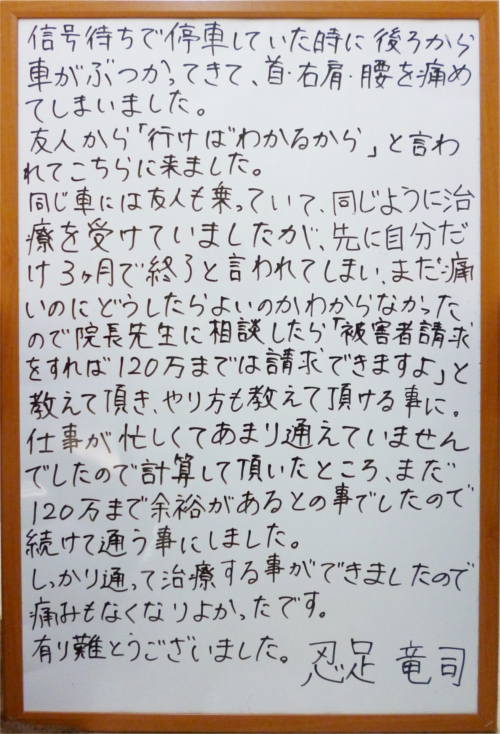 信号待ちで停車していた時に後ろから
車がぶつかってきて、首・右肩・腰を痛め
てしまいました。
友人から「行けばわかるから」と言わ
れてこちらに来ました。
同じ車には友人も乗っていて、同じように治
療を受けていましたが、先に自分だ
け3ヶ月で終了と言われてしまい、まだ痛
いのにどうしたらよいのかわからなかった
ので院長先生に相談したら「被害者請求
をすれば120万までは請求できますよ」と
教えて頂き、やり方も教えて頂ける事に。
仕事が忙しくてあまり通えていません
でしたので計算して頂いたところ、まだ
120万まで余裕があるとの事でしたので
続けて通う事にしました。
しっかり通って治療する事ができましたので
痛みもなくなりよかったです。
有り難とうございました。
忍足 竜司